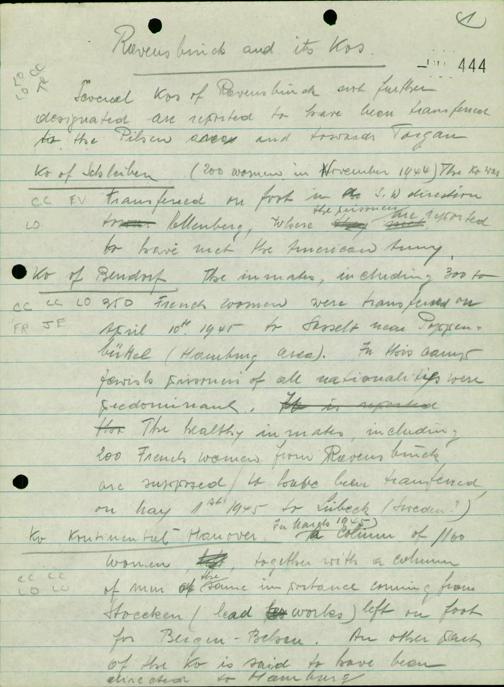 1
Ravensbrück and its Kos.
444
Several Kos of Ravensbrück not further
designated are reported to have been transferred
to the Pilsen area and towards Torgau
Ko of Schlieben (200 women in November 1944) The Ko was
CC FV transferred on foot in S.W direction
LO Eilenburg, where the prisoners are reported
to have met the American Army.
Ko of Bendorf The inmates, including 300 to
CC CC LO 350 French women were transferred on
FR JF April 10th 1945 to Sasselt near Poppen-
büttel (Hamburg area). In this camp
Jewish prisoners of all nationalities were
predominant. It is reported
The healthy inmates, including
200 French women from Ravensbrück
are supposed to have been transferred
on May 1st 1945 to Lübeck (Sweden?)
Ko Kontinental Hanover. In March 1945) a column of
women together with a column
CC CC of men of the same importance coming from
LO LO Stoecken (lead works) left on foot
for Bergen-Belsen. An other part
of the Ko is said to have been
directed to Hamburg